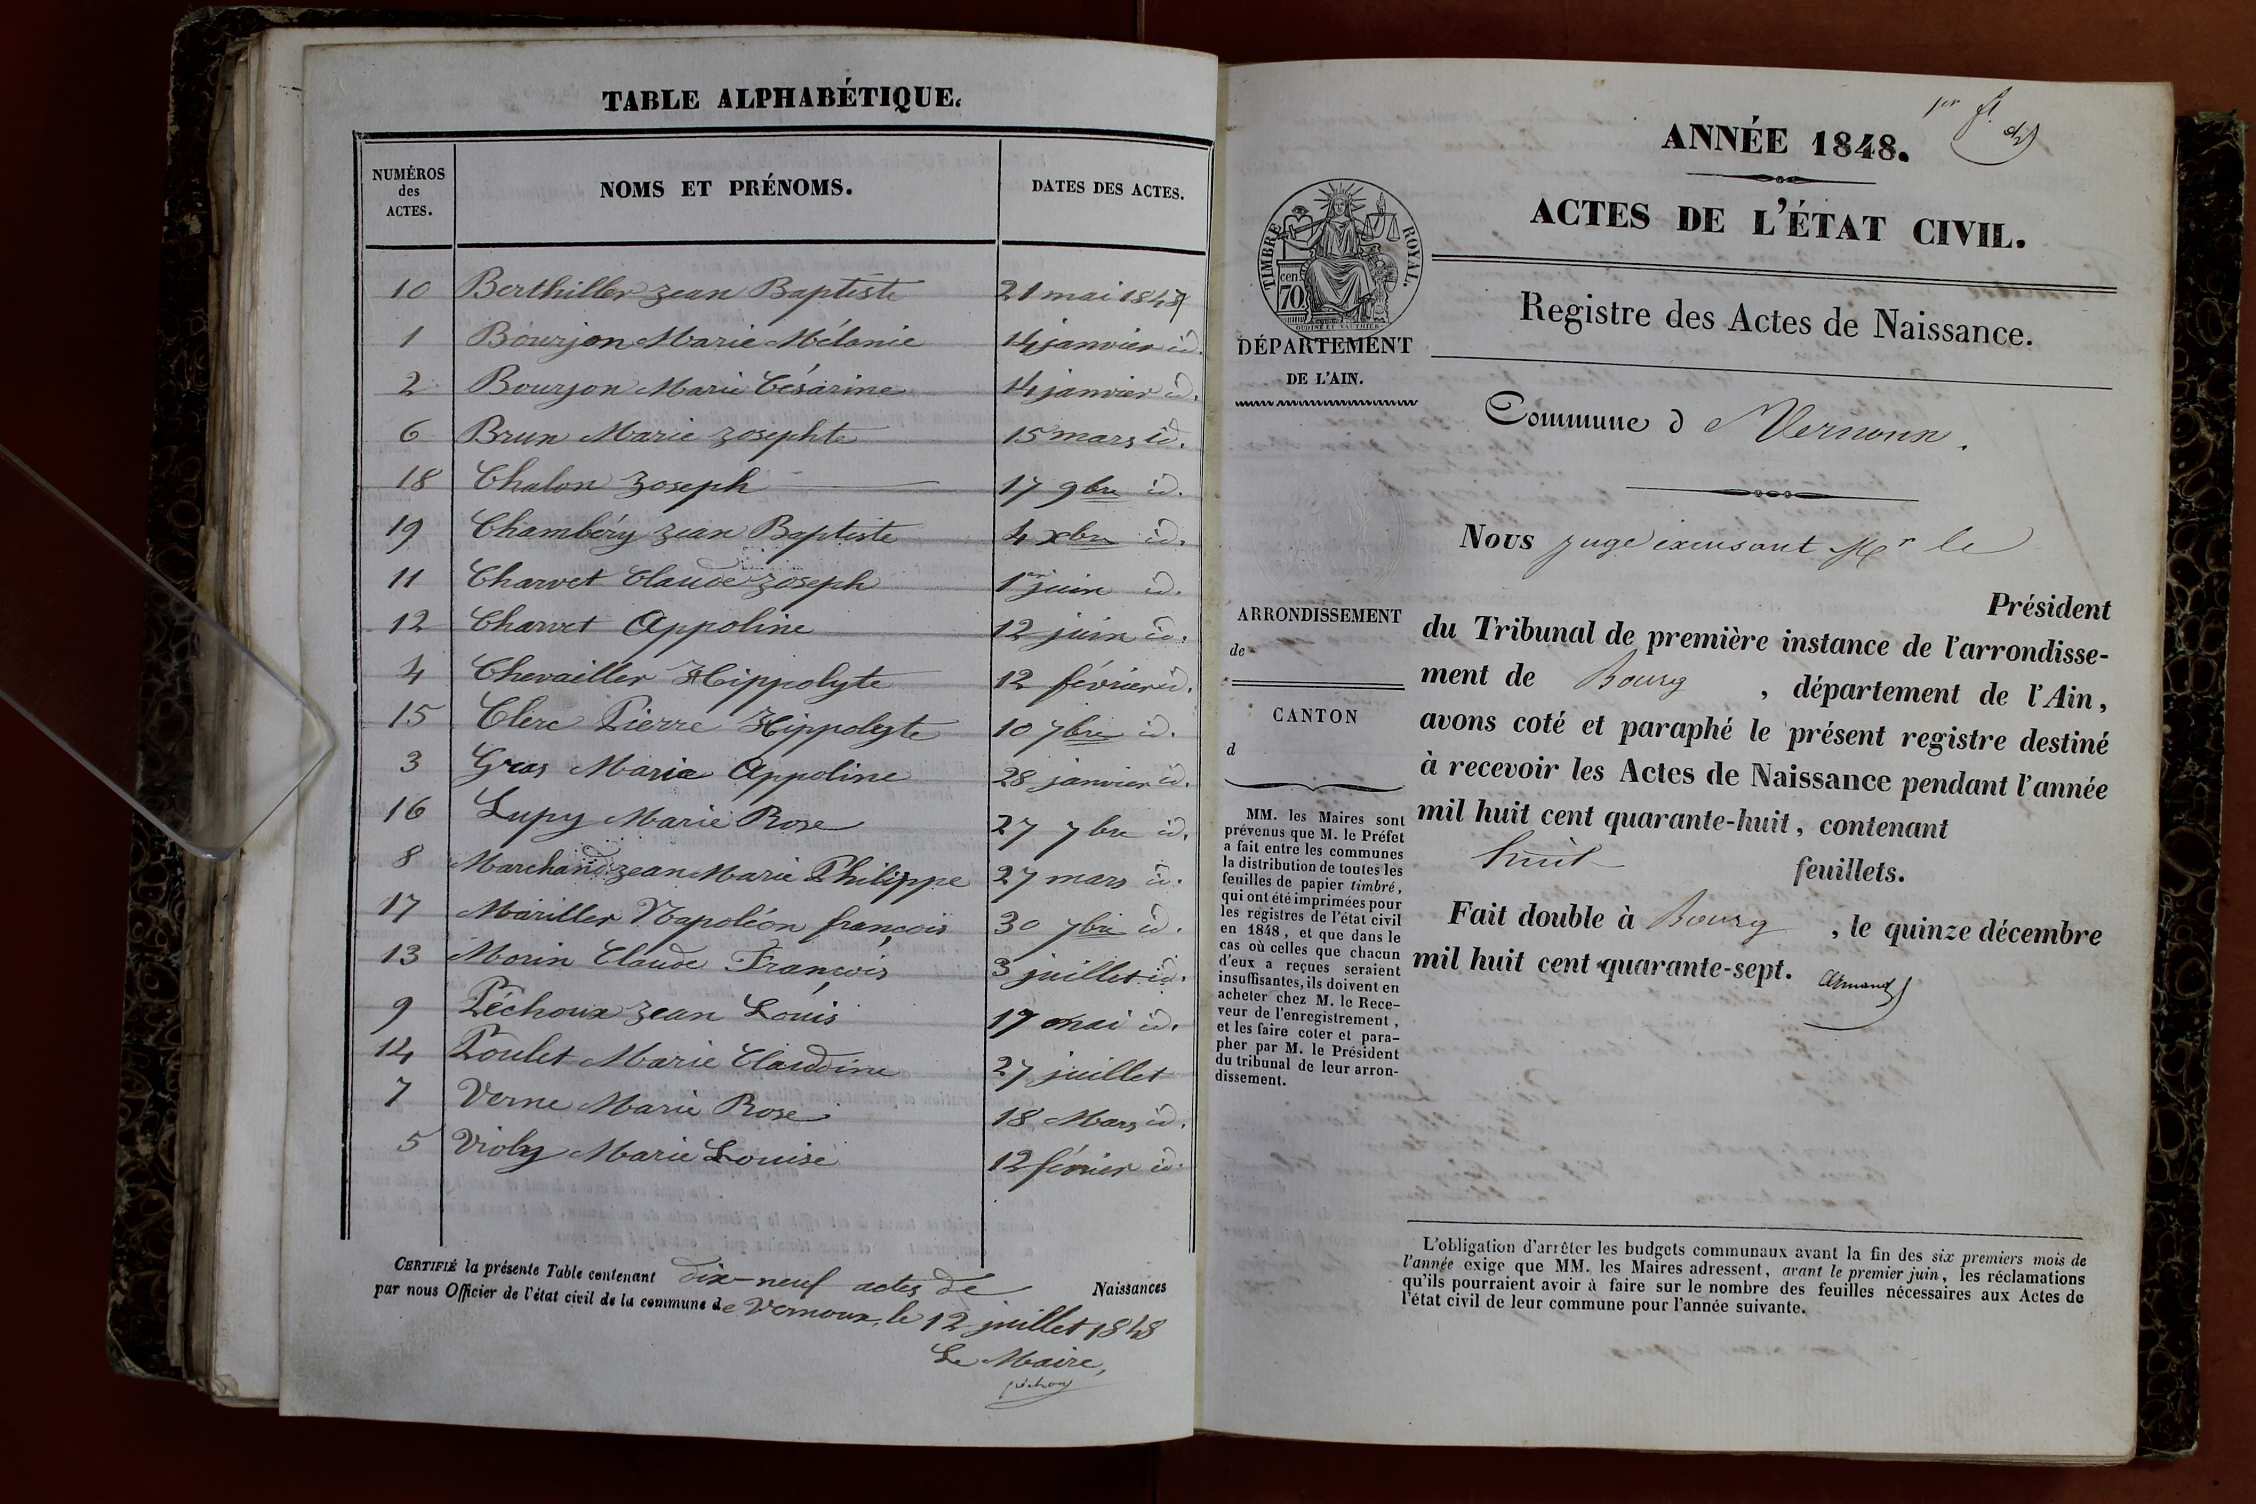 TABLE ALPHABÉTIQUE.
NUMÉROS des ACTES. NOMS ET PRÉNOMS. DATES DES ACTES.
10 Berthiller Jean Baptiste 21 mai 1847
1 Bourjon Marie Mélanie 14 janvier id.
2 Bourjon Marie Césarine 14 janvier id.
6 Brun Marie Josephte 15 mars id.
18 Chalon Joseph 17 9bre id.
19 Chambéry Jean Baptiste 4 xbre id.
11 Charvet Claude Joseph 1er juin id.
12 Charvet Appoline 12 juin id.
4 Chevailler Hippolyte 12 février id.
15 Clerc Pierre Hippolyte 10 7bre id.
3 Gras Marie Appoline 28 janvier id.
16 Lupy Marie Rose 27 7bre id.
8 Marchand Jean Marie Philippe 27 mars id.
17 Mariller Napoléon françois 30 7bre id.
13 Morin Claude François 3 juillet id.
9 Péchoux Jean Louis 17 mai id.
14 Poulet Marie Claudine 27 juillet
7 Verne Marie Rose 18 Mars id.
5 Violy Marie Louise 12 février id.
CERTIFIÉ la présente Table contenant dix-neuf actes de Naissances
par nous Officier de l'état civil de la commune de Vernoux, le 12 juillet 1848
Le Maire,
1er ft.
ANNÉE 1848.
ACTES DE L'ÉTAT CIVIL.
TIMBRE ROYAL.
70 cen
DÉPARTEMENT
DE L'AIN.
Registre des Actes de Naissance.
Commune d Vernoux.
Nous juge excusant Mr le
Président
du Tribunal de première instance de l'arrondisse-
ment de Bourg, département de l'Ain,
avons coté et paraphé le présent registre destiné
à recevoir les Actes de Naissance pendant l'année
mil huit cent quarante-huit, contenant
huit feuillets.
Fait double à Bourg, le quinze décembre
mil huit cent quarante-sept.
Armand
ARRONDISSEMENT
de
CANTON
d
MM. les Maires sont
prévenus que M. le Préfet
a fait entre les communes
la distribution de toutes les
feuilles de papier timbré,
qui ont été imprimées pour
les registres de l'état civil
en 1848, et que dans le
cas où celles que chacun
d'eux a reçues seraient
insuffisantes, ils doivent en
acheter chez M. le Rece-
veur de l'enregistrement,
et les faire coter et para-
pher par M. le Président
du tribunal de leur arron-
dissement.
L'obligation d'arrêter les budgets communaux avant la fin des six premiers mois de
l'année exige que MM. les Maires adressent, avant le premier juin, les réclamations
qu'ils pourraient avoir à faire sur le nombre des feuilles nécessaires aux Actes de
l'état civil de leur commune pour l'année suivante.